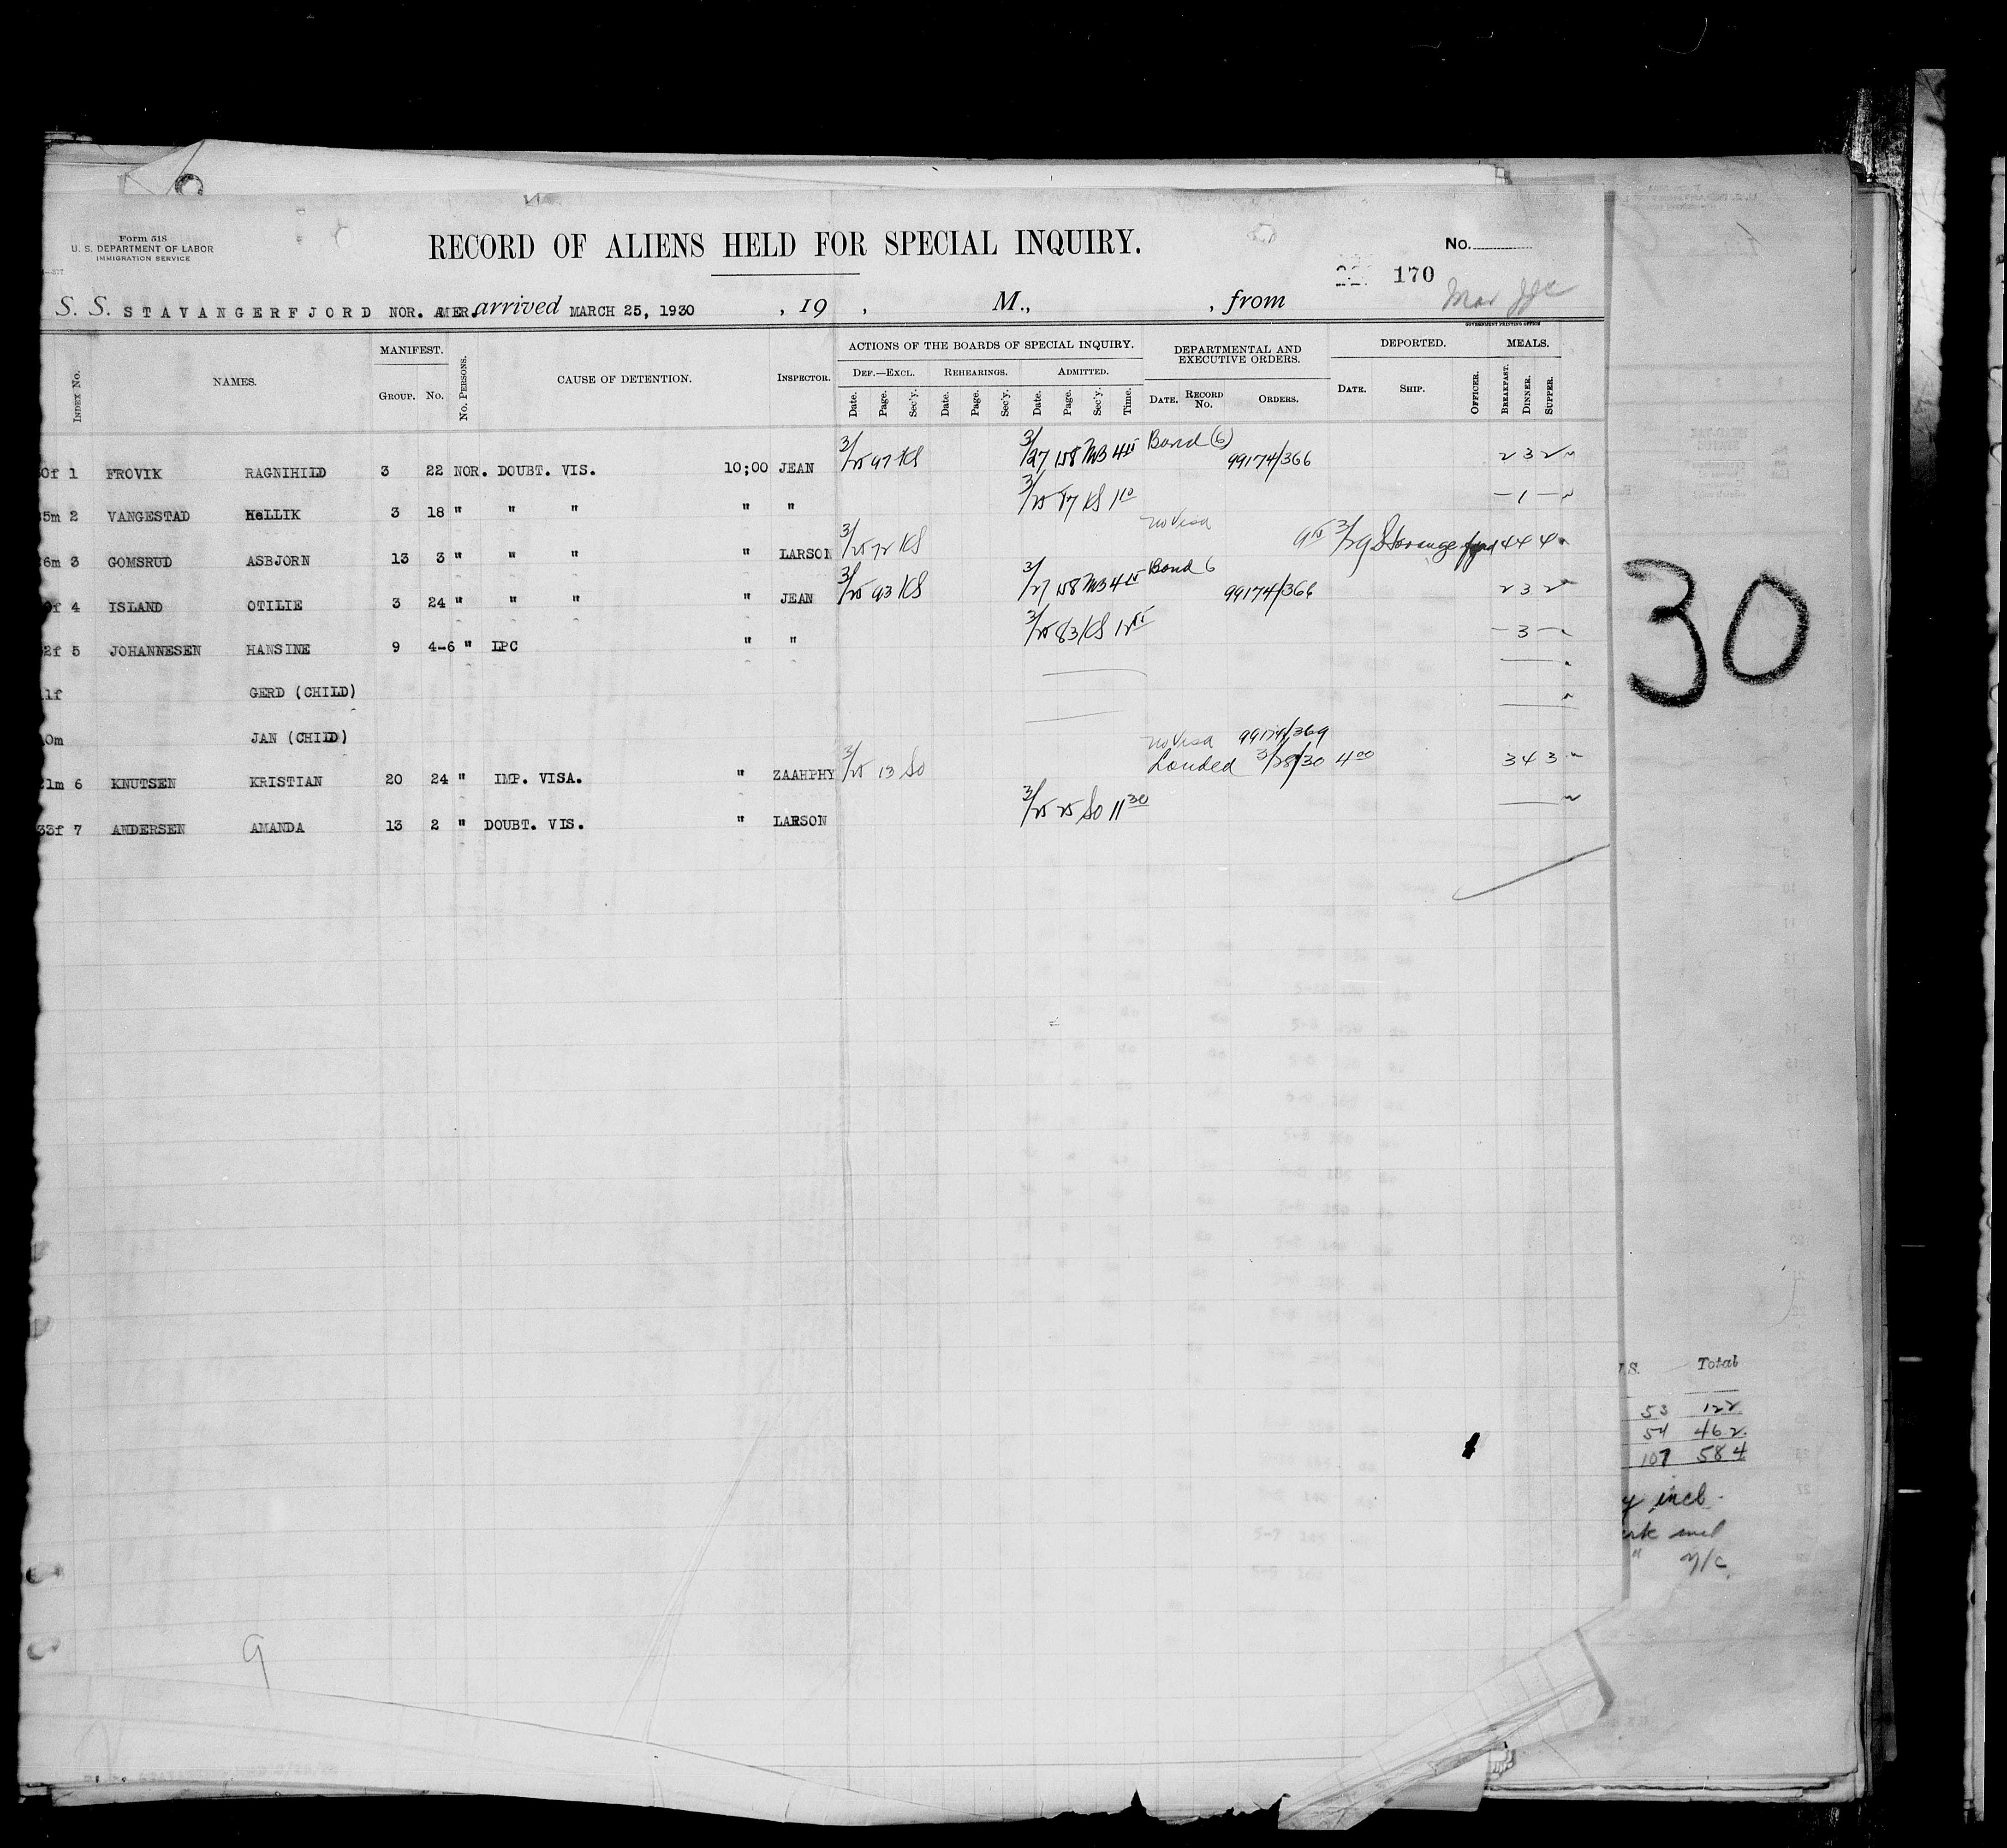 Form 518
U. S. DEPARTMENT OF LABOR
IMMIGRATION SERVICE
RECORD OF ALIENS HELD FOR SPECIAL INQUIRY.
No.
170
S. S. STAVANGERFJORD NOR. AMER. arrived MARCH 25, 1930 , 19 , M., , from
GOVERNMENT PRINTING OFFICE
INDEX No. NAMES. MANIFEST. GROUP. No. No. PERSONS. CAUSE OF DETENTION. INSPECTOR. ACTIONS OF THE BOARDS OF SPECIAL INQUIRY. DEF.—EXCL. Date. Page. Sec'y. REHEARINGS. Date. Page. Sec'y. ADMITTED. Date. Page. Sec'y. Time. DEPARTMENTAL AND EXECUTIVE ORDERS. DATE. RECORD No. ORDERS. DEPORTED. DATE. SHIP. OFFICER. MEALS. BREAKFAST. DINNER. SUPPER.
0f 1 FROVIK RAGNIHILD 3 22 NOR. DOUBT. VIS. 10;00 JEAN 3/25 97 KS 3/27 158 MB 4 15 Bond (6) 99174/366 2 3 2
5m 2 VANGESTAD HeLLIK 3 18 " " " " " 3/25 87 KS 1 10 — 1 —
6m 3 GOMSRUD ASBJORN 13 3 " " " " LARSON 3/25 72 KS no visa 9 15 3/29 Stavangerfjord 4 4 4
f 4 ISLAND OTILIE 3 24 " " " " JEAN 3/25 93 KS 3/27 158 MB 4 15 Bond 6 99174/366 2 3 2
2f 5 JOHANNESEN HANSINE 9 4-6 " LPC " " 3/25 83 KS 12 55 — 3 —
1f GERD (CHILD)
0m JAN (CHILD)
1m 6 KNUTSEN KRISTIAN 20 24 " IMP. VISA. " ZAAHPHY 3/25 13 So no visa 99174/369 Landed 3/28/30 4 00 3 4 3
33f 7 ANDERSEN AMANDA 13 2 " DOUBT. VIS. " LARSON 3/25 25 So 11 30
30
.S. Total
53 122
54 462
107 584
y incl.
9